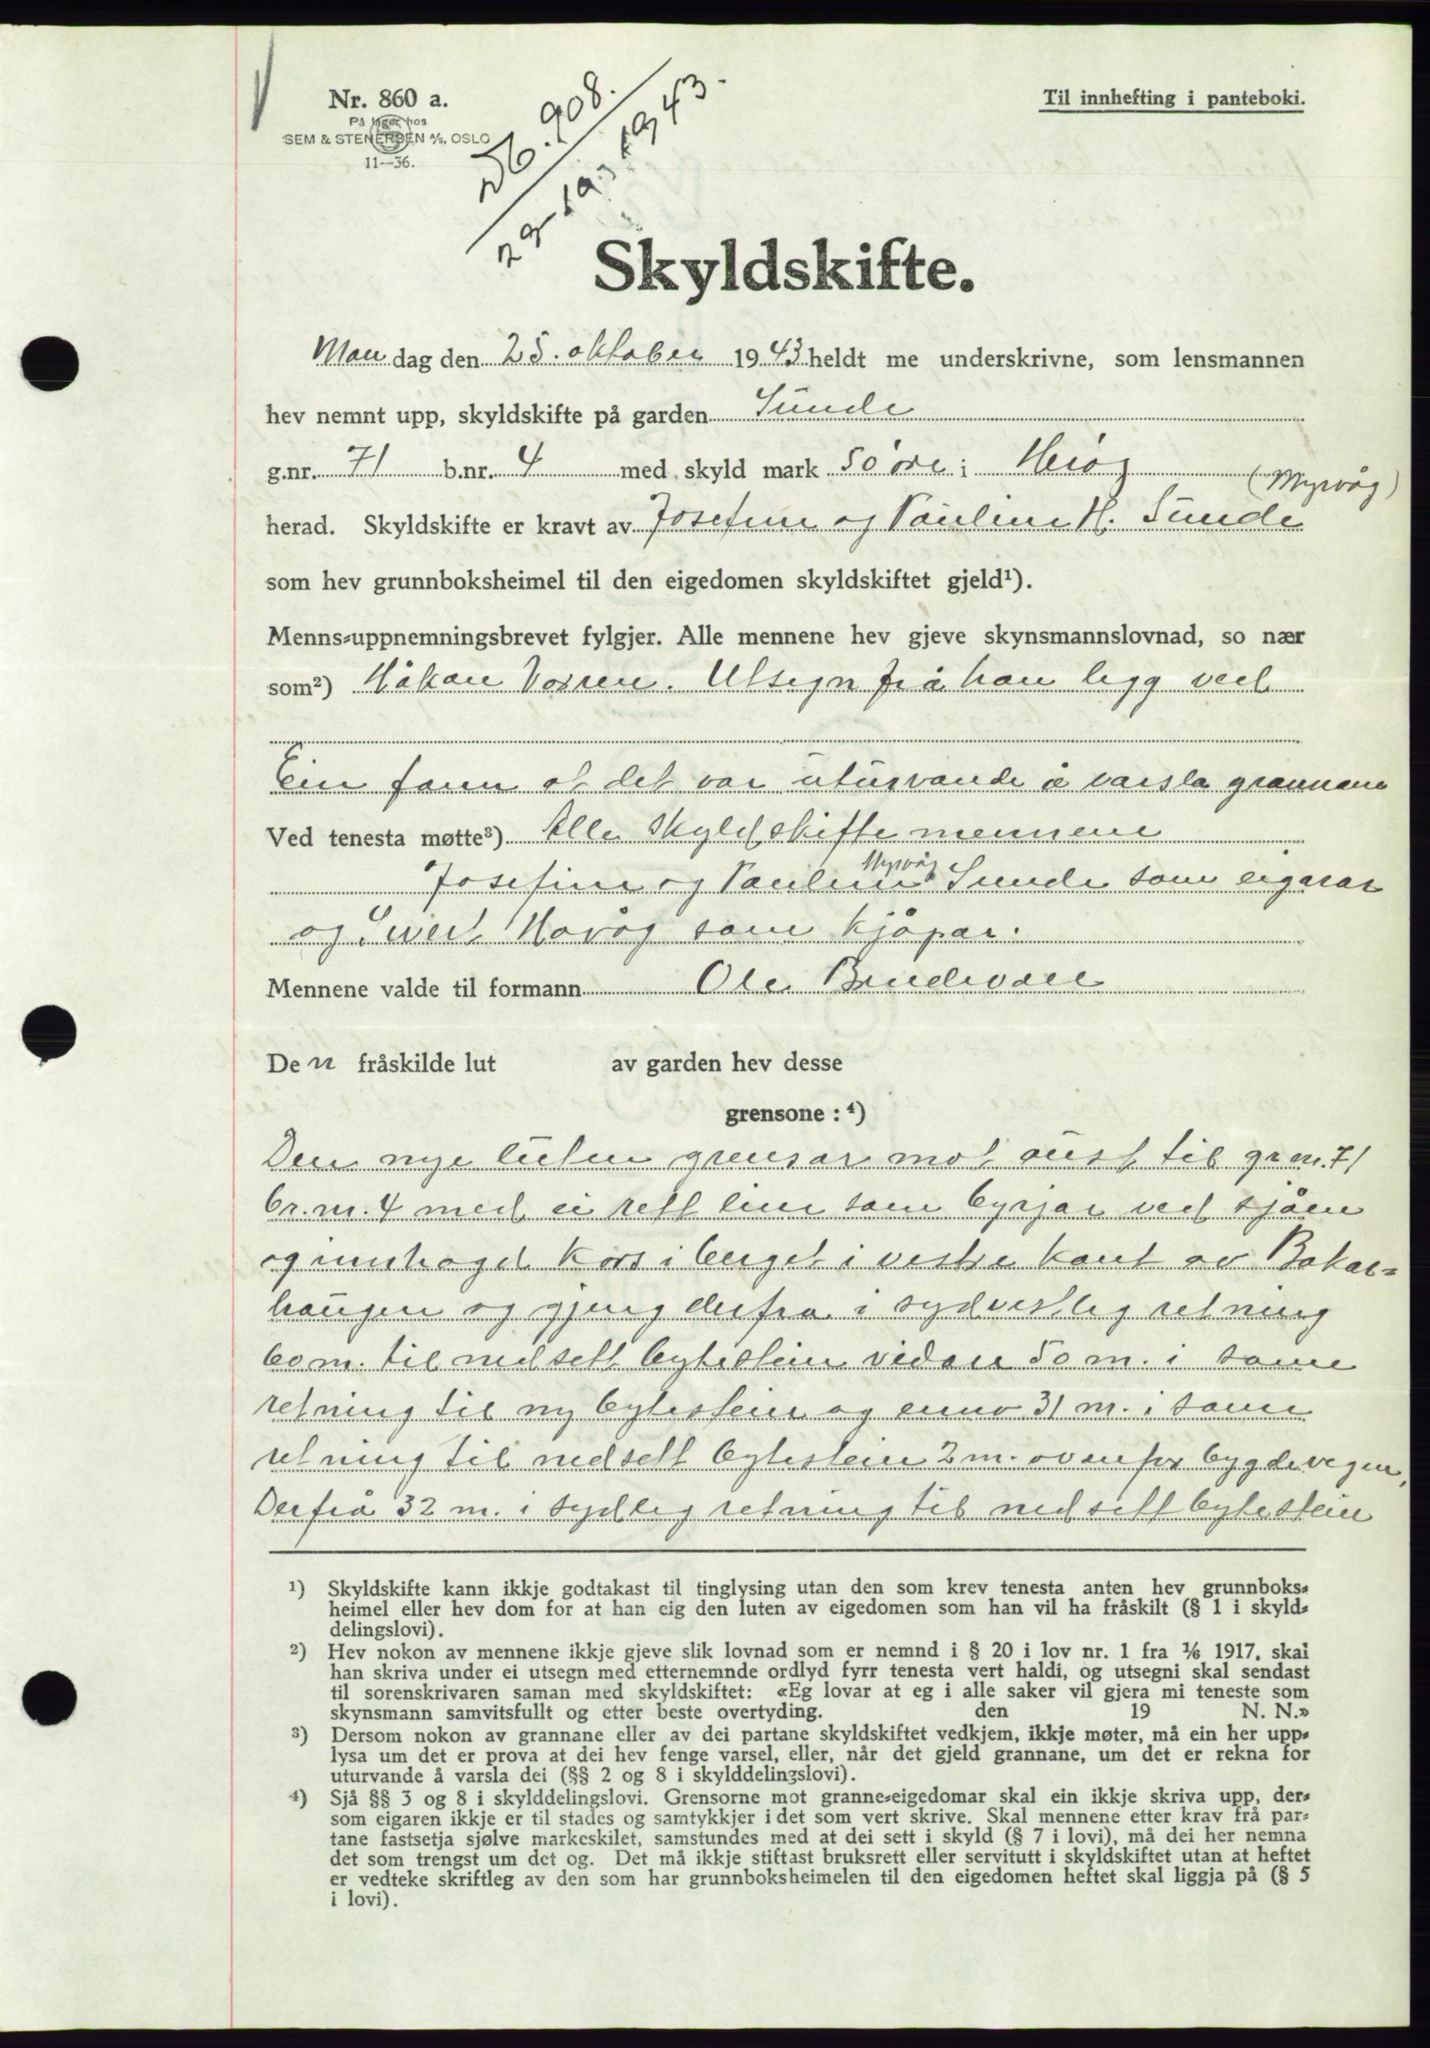 Nr. 860 a.
På lager hos
SEM & STENERSEN A/S, OSLO
11—36.
Nr. 908.
1943.
Til innhefting i panteboki.
Skyldskifte.
Mandag den 25. oktober 1943 heldt me underskrivne, som lensmannen
hev nemnt upp, skyldskifte på garden Sunde
g.nr. 71 b.nr. 4 med skyld mark 50 øre i Herøy
(Myrvåg)
herad. Skyldskifte er kravt av Josefine og Pauline H. Sunde
som hev grunnboksheimel til den eigedomen skyldskiftet gjeld¹).
Menns-uppnemningsbrevet fylgjer. Alle mennene hev gjeve skynsmannslovnad, so nær
som²) Håkon Voren. Utsegn frå han ligg ved
Ein fann at det var uturvande å varsla grannane
Ved tenesta møtte³) Alle skyldskiftemennene
Myrvåg
Josefine og Pauline Sunde som eigarar
og Sivert Havåg som kjøpar.
Mennene valde til formann Ole Brudevoll
Den fråskilde lut av garden hev desse
grensone : ⁴)
Den nye luten grensar mot aust til gr.nr. 71
br.nr. 4 med ei rett line som byrjar ved sjøen
og innhogd kors i berget i vestre kant av Bakar=
haugen og gjeng derfra i sydvestleg retning
60 m. til nedsett bytestein vidare 50 m. i same
retning til ny bytestein og enno 31 m. i same
retning til nedsett bytestein 2 m. ovanfor bygdevegen,
Derfrå 32 m. i sydleg retning til nedsett bytestein
¹) Skyldskifte kann ikkje godtakast til tinglysing utan den som krev tenesta anten hev grunnboks-
heimel eller hev dom for at han eig den luten av eigedomen som han vil ha fråskilt (§ 1 i skyld-
delingslovi).
²) Hev nokon av mennene ikkje gjeve slik lovnad som er nemnd i § 20 i lov nr. 1 fra 1/6 1917, skal
han skriva under ei utsegn med etternemnde ordlyd fyrr tenesta vert haldi, og utsegni skal sendast
til sorenskrivaren saman med skyldskiftet: «Eg lovar at eg i alle saker vil gjera mi teneste som
skynsmann samvitsfullt og etter beste overtyding. den 19 N. N.»
³) Dersom nokon av grannane eller av dei partane skyldskiftet vedkjem, ikkje møter, må ein her upp-
lysa um det er prova at dei hev fenge varsel, eller, når det gjeld grannane, um det er rekna for
uturvande å varsla dei (§§ 2 og 8 i skylddelingslovi).
⁴) Sjå §§ 3 og 8 i skylddelingslovi. Grensorne mot granne-eigedomar skal ein ikkje skriva upp, der-
som eigaren ikkje er til stades og samtykkjer i det som vert skrive. Skal mennene etter krav frå par-
tane fastsetja sjølve markeskilet, samstundes med at dei sett i skyld (§ 7 i lovi), må dei her nemna
det som trengst um det og. Det må ikkje stiftast bruksrett eller servitutt i skyldskiftet utan at heftet
er vedteke skriftleg av den som har grunnboksheimelen til den eigedomen heftet skal liggja på (§ 5
i lovi).